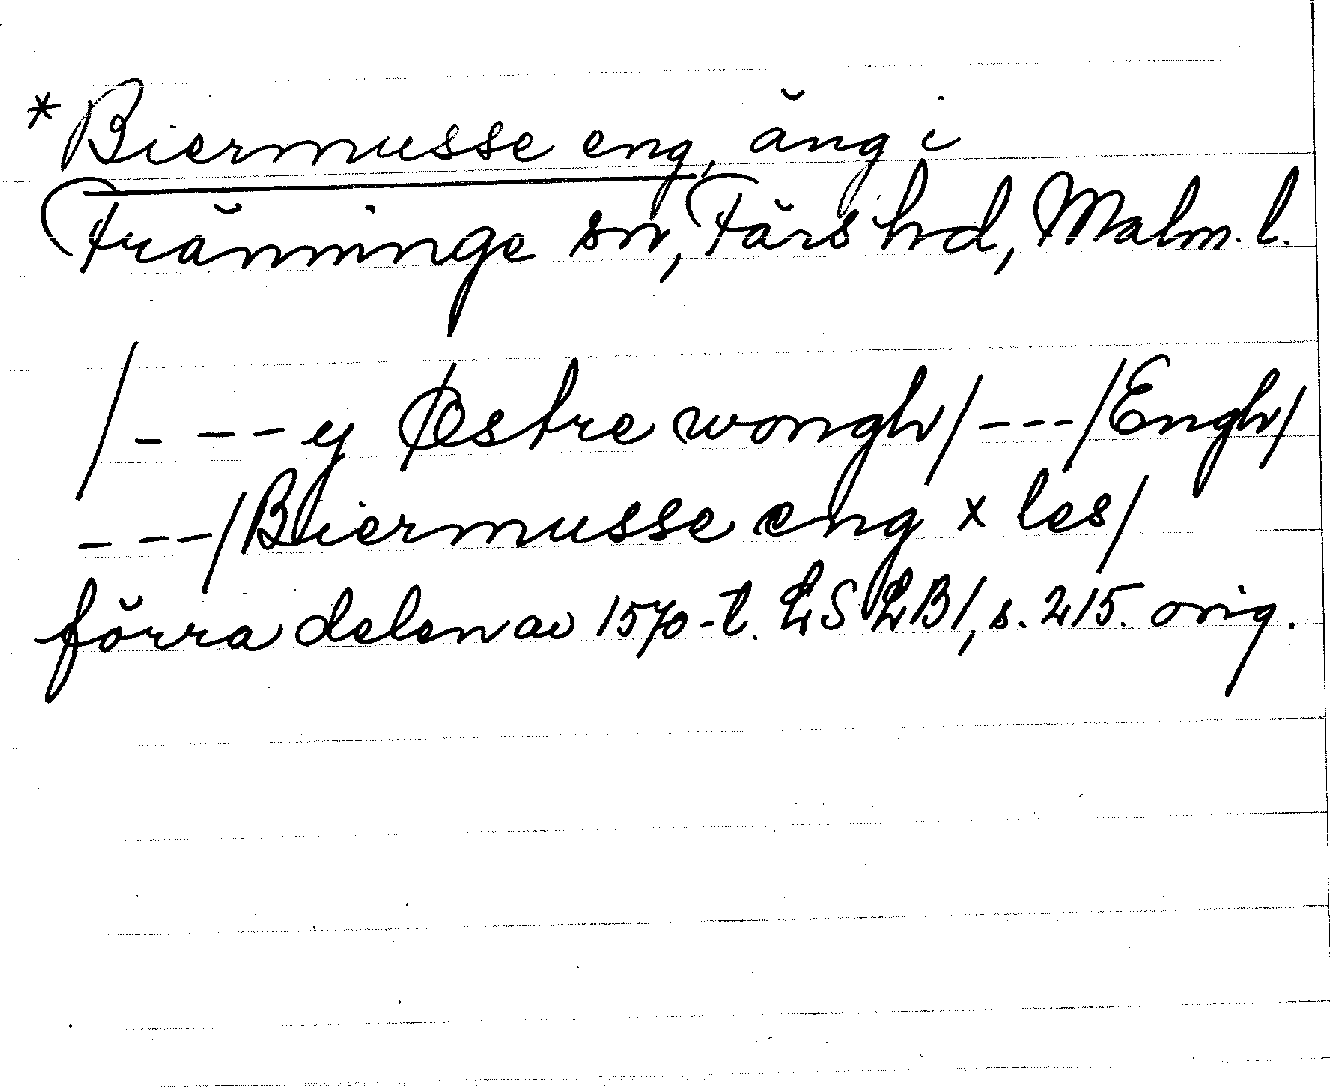 *Biermusse eng, äng i
Fränninge sn, Färs hd, Malm. l.
/---y Østre wongh/---/Engh/
---/Biermusse eng x les/
förra delen av 1570-t. LSLB1, s. 215. orig.